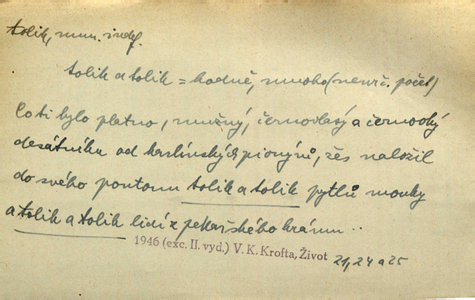 tolik, num. indef.
tolik a tolik = hodně, mnoho (neurč. počet)
Co ti bylo platno, mužný, černovlasý a černooký
desátníku od karlínských pionýrů, žes naložil
do svého pontonu tolik a tolik pytlů mouky
a tolik a tolik lidí z pekařského krámu..
1946 (exc. II. vyd.) V. K. Krofta, Život
21, 24 a 25